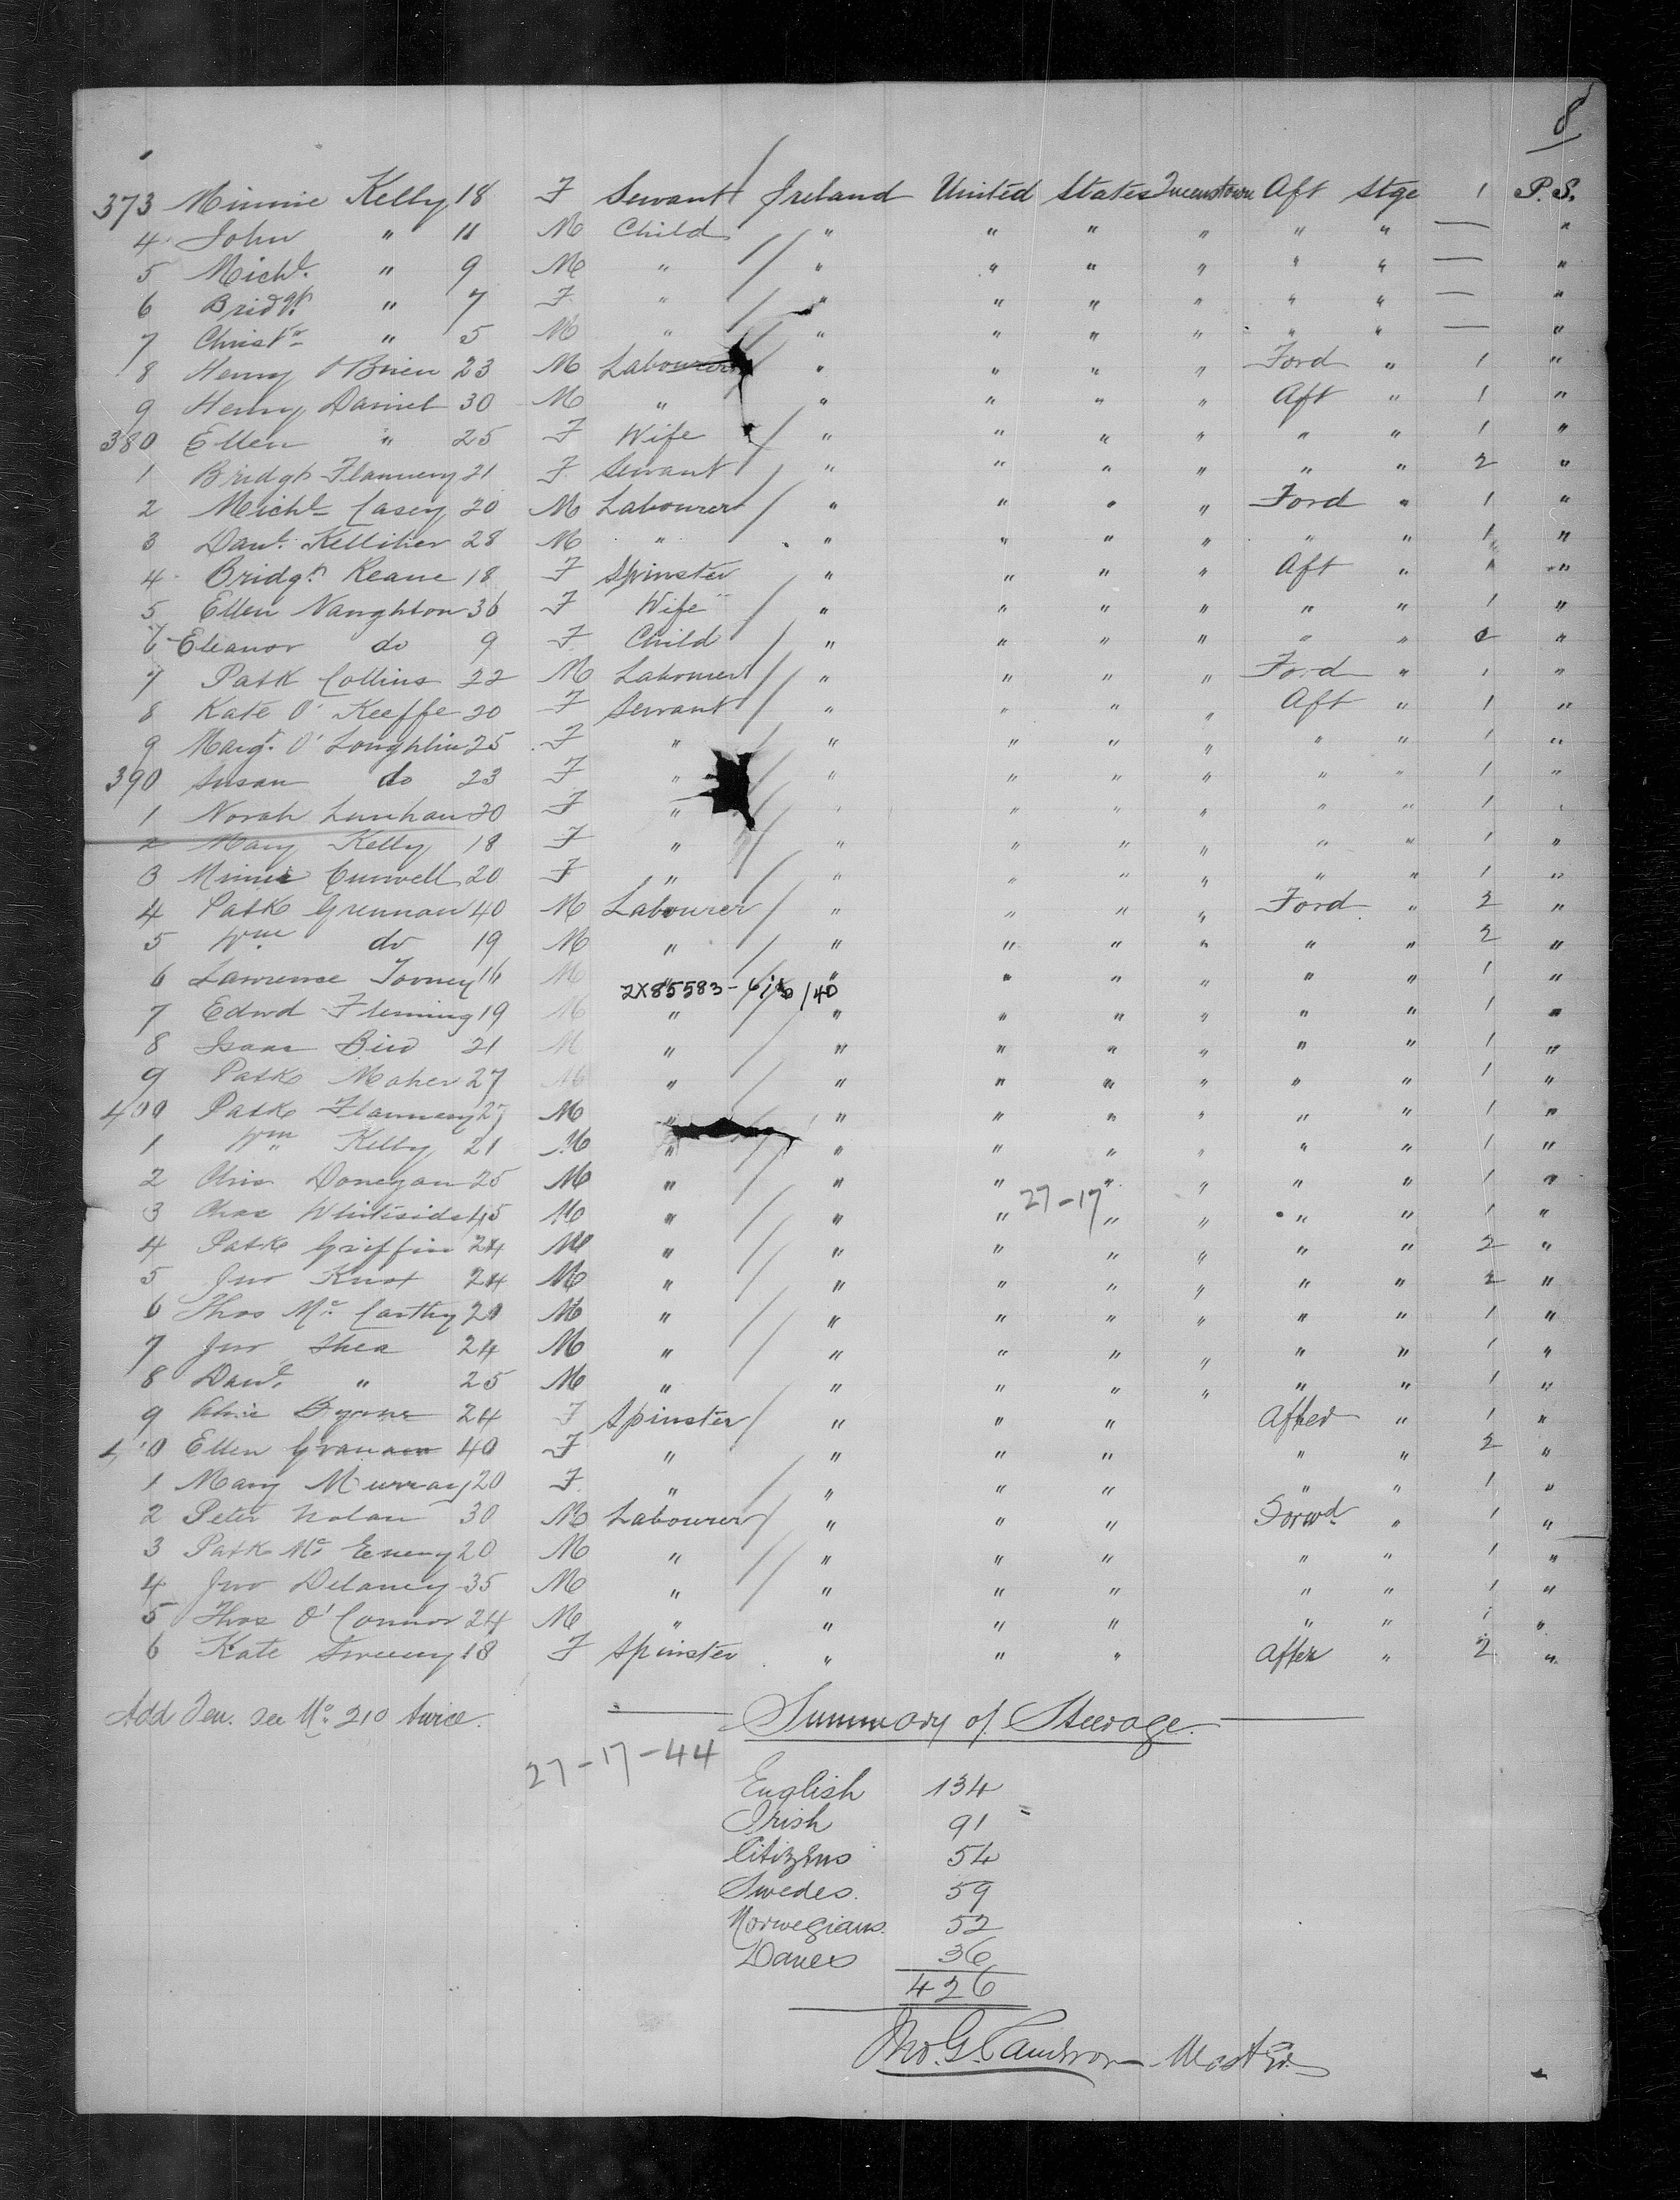 8
373 Minnie Kelly 18 F Servant Ireland United States Queenstown Aft Stge 1 P.S.
4 John " 11 M Child " " " " " " — "
5 Michl. " 9 M " " " " " " " — "
6 Bridgt. " 7 F " " " " " " " — "
7 Christr " 5 M " " " " " " " — "
8 Henry O'Brien 23 M Labourer " " " " Ford " 1 "
9 Henry Daniel 30 M " " " " " Aft " 1 "
380 Ellen " 25 F Wife " " " " " " 1 "
1 Bridgt Flannery 21 F Servant " " " " " " 2 "
2 Michl Casey 20 M Labourer " " " " Ford " 1 "
3 Danl. Kelliher 28 M " " " " " " " 1 "
4 Bridgt Keane 18 F Spinster " " " " Aft " 1 "
5 Ellen Naughton 36 F Wife " " " " " " 1 "
6 Eleanor do 9 F Child " " " " " " "
7 Patk Collins 22 M Labourer " " " " Ford " 1 "
8 Kate O'Keeffe 20 F Servant " " " " Aft " 1 "
9 Margt. O'Loughlin 25 F " " " " " " " 1 "
390 Susan do 23 F " " " " " " " 1 "
1 Norah Lenihan 20 F " " " " " " " 1 "
2 Mary Kelly 18 F " " " " " " " 1 "
3 Minnie 20 F " " " " " " " 1 "
4 Patk Grennan 40 M Labourer " " " " Ford " 2 "
5 Wm do 19 M " " " " " " " 2 "
6 Lawrence 16 M " " " " " " " 1 "
2X85583 - 6/ /40
7 Edwd Fleming 19 M " " " " " " " 1 "
8 Isaac 21 M " " " " " " " 1 "
9 Patk Maher 27 M " " " " " " " 1 "
400 Patk Flannery 27 M " " " " " " " 1 "
1 Wm Kelly 21 M " " " " " " " 1 "
2 Donegan 25 M " " " " " " " 1 "
27-17
3 Chas Whiteside 45 M " " " " " " " 1 "
4 Patk Griffin 24 M " " " " " " " 2 "
5 Jno Knox 24 M " " " " " " " 2 "
6 Thos Mc Carthy M " " " " " " " 1 "
7 Jno Shea 24 M " " " " " " " 1 "
8 Danl. " 25 M " " " " " " " 1 "
9 Byrne 24 F Spinster " " " After " 1 "
410 Ellen 40 F " " " " " " 2 "
1 Mary Murray 20 F " " " " " " 1 "
2 Peter Nolan 30 M Labourer " " " Forwd " 1 "
3 Patk Mc Eneny 20 M " " " " " " 1 "
4 Jno Delaney 35 M " " " " " " 1 "
5 Thos O'Connor 24 M " " " " " " 1 "
6 Kate Sweeny 18 F Spinster " " " After " 2 "
Add Ten. See No. 210 twice.
Summary of Steerage.
27-17-44
English 134
Irish 91
Citizens 54
Swedes. 59
Norwegians. 52
Danes 36
426
Master